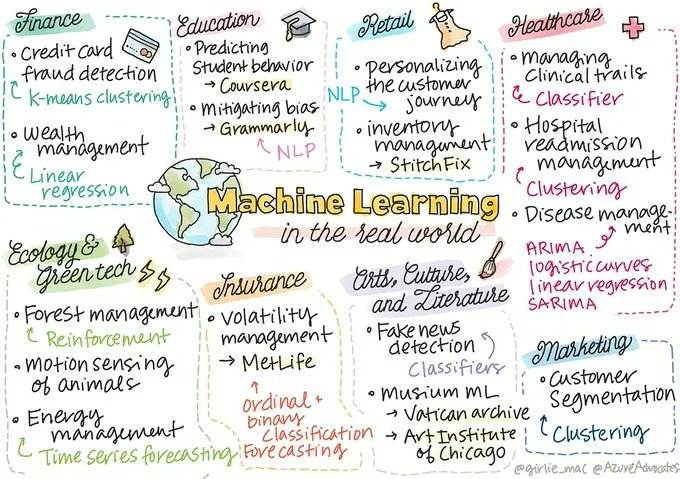 Finance
• Credit card
fraud detection
K-means clustering
• Wealth
management
Linear
regression
Education
• Predicting
Student behavior
→ Coursera
• Mitigating bias
→ Grammarly
NLP
Retail
• Personalizing
the customer
journey
NLP
• inventory
management
→ StitchFix
Healthcare
• Managing
Clinical trails
Classifier
• Hospital
readmission
management
Clustering
• Disease manage-
ment
ARIMA
logistic curves
linear regression
SARIMA
Machine Learning
in the real world
Ecology &
Green tech
• Forest management
Reinforcement
• Motion sensing
of animals
• Energy
management
Time series forecasting
Insurance
• Volatility
management
→ MetLife
ordinal +
binary
Classification
Forecasting
Arts, Culture,
and Literature
• Fake news
detection
Classifiers
• Musium ML
→ Vatican archive
→ Art Institute
of Chicago
Marketing
• Customer
Segmentation
Clustering
@girlie_mac @AzureAdvocates